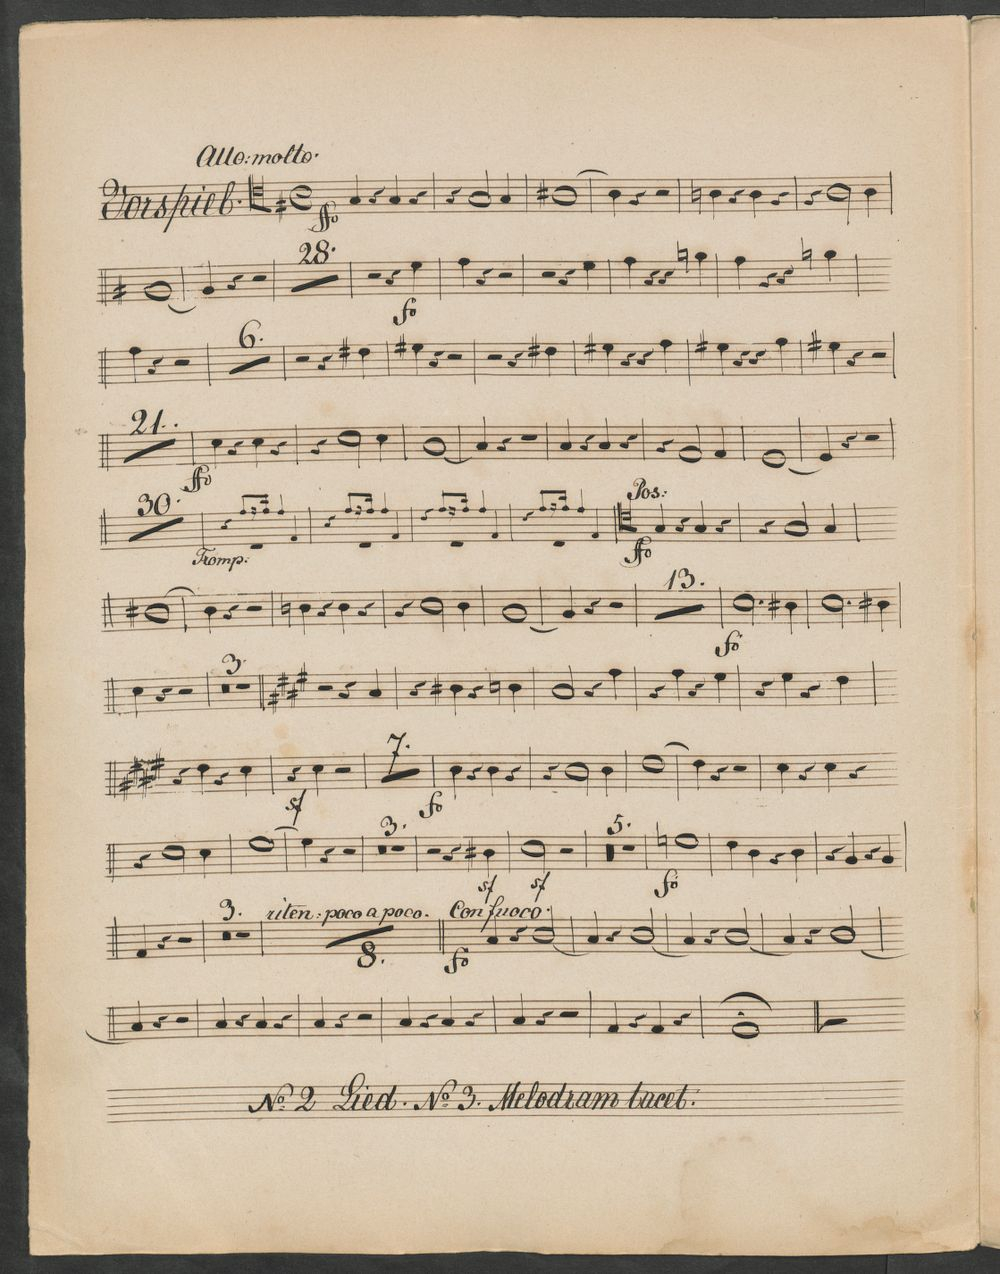 Allo: molto.
Vorspiel.
ffo
28.
fo
6.
21.
ffo
30.
Tromp:
Pos:
ffo
13.
fo
3.
7.
sf
fo
3.
5.
sf sf fo
3. riten: poco a poco. Con fuoco.
8. fo
No. 2 Lied. No. 3. Melodram tacet.